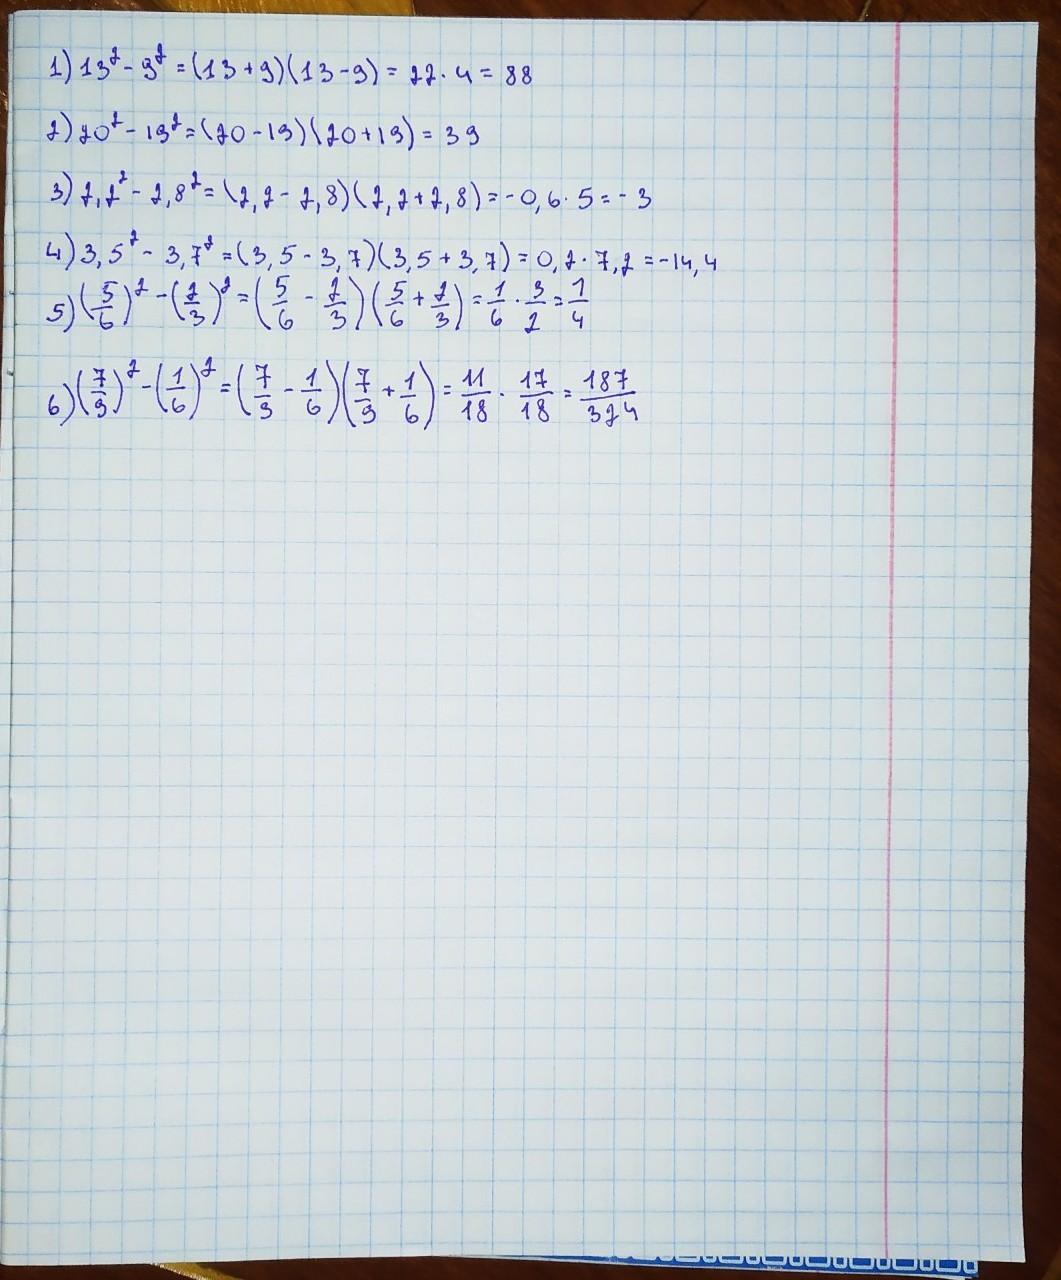 1) 13² - 9² = (13 + 9)(13 - 9) = 22 · 4 = 88
2) 20² - 19² = (20 - 19)(20 + 19) = 39
3) 2,2² - 2,8² = (2,2 - 2,8)(2,2 + 2,8) = -0,6 · 5 = -3
4) 3,5² - 3,7² = (3,5 - 3,7)(3,5 + 3,7) = 0,2 · 7,2 = -14,4
5) (5/6)² - (2/3)² = (5/6 - 2/3)(5/6 + 2/3) = 1/6 · 3/2 = 1/4
6) (7/9)² - (1/6)² = (7/9 - 1/6)(7/9 + 1/6) = 11/18 · 17/18 = 187/324